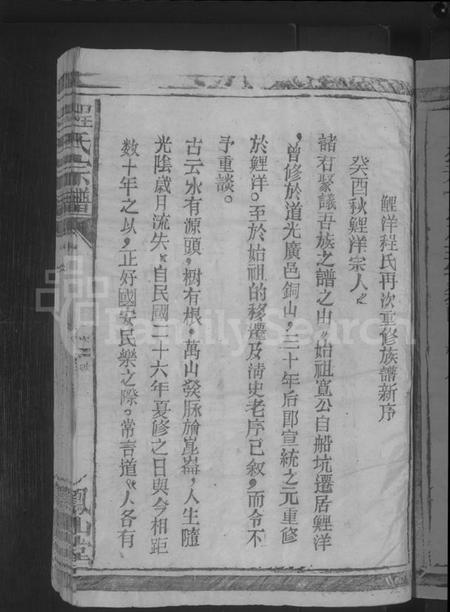 鯉洋程氏再次重修族譜新序
癸酉秋鯉洋宗人〻
諸君聚議吾族之譜之由〻始祖寬公自船坑遷居鯉洋
，曾修於道光廣邑銅山，三十年后即宣統之元重修
於鯉洋。至於始祖的移遷及清史老序已叙，而今不
予重談。
古云水有源頭，樹有根，萬山發脉崙崑崙，人生隨
光陰歲月流失〻自民國二十六年夏修之日與今相距
数十年之以，正好國安民樂之際。常言道〻人各有
程氏宗譜
FamilySearch